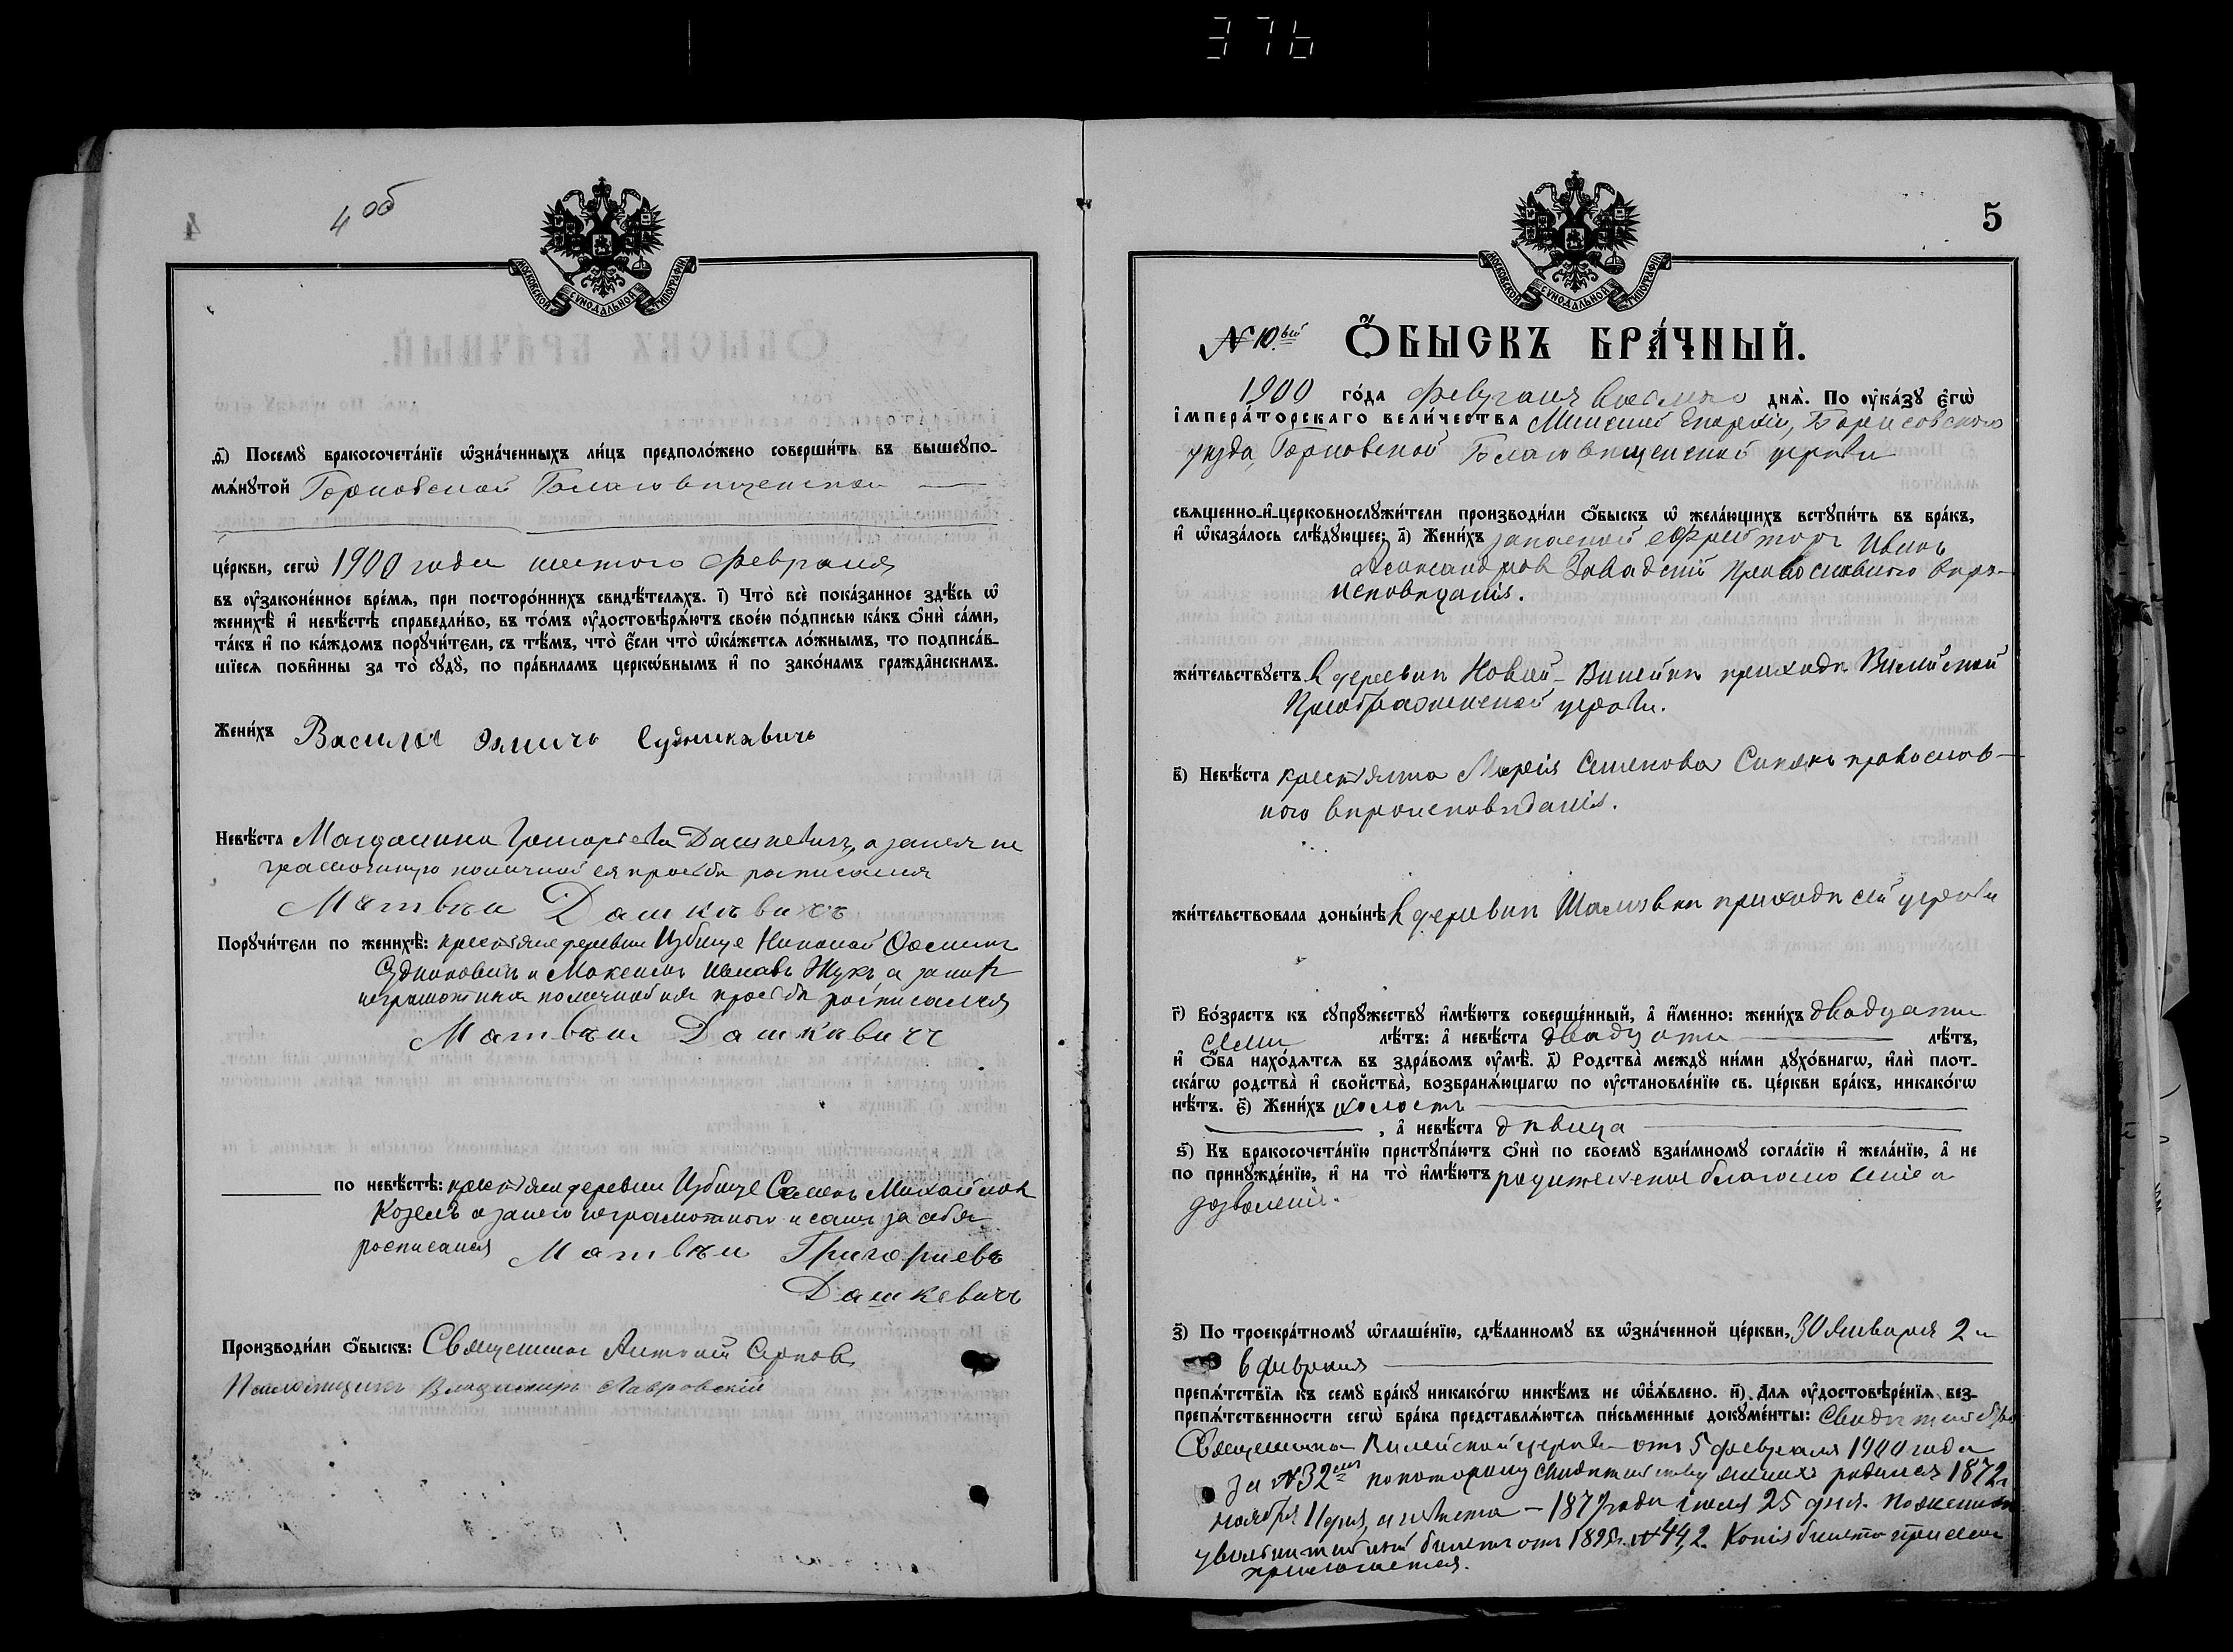 376
4 об
МОСКОВСКОЙ СѴНОДАЛЬНОЙ ТИПОГРАФІИ
Посемꙋ бракосочета́нїе ѡ҆зна́ченныхъ ли́цъ предполо́жено соверши́ть въ вышеꙋпо-
мѧ́нꙋтой Горновской Благовѣщенской
це́ркви, сегѡ̀ 1900 года шестого февраля
въ ᲂу҆законе́нное вре́мѧ, при посторо́ннихъ свидѣ́телѧхъ. і҃) Что̀ всѐ пока́занное здѣ́сь ѡ҆
женихѣ̀ и҆ невѣ́стѣ справедли́во, въ то́мъ ᲂу҆достовѣрѧ́ютъ свое́ю по́дписью ка́къ ѻ҆нѝ са́ми,
та́къ и҆ по ка́ждомъ порꙋчи́тели, съ тѣ́мъ, что̀ є҆́сли что̀ ѡ҆ка́жетсѧ ло́жнымъ, то подписа́в-
шїесѧ пови́нны за то̀ сꙋдꙋ̀, по пра́виламъ церкѡ́внымъ и҆ по зако́намъ гражда̑нскимъ.
Жени́хъ Василь
Невѣ́ста Магдалина Григорьева Дашкевичъ, а за нея не
грамотную по личной ея просьбѣ росписался
Матвѣи Дашкѣвичъ
Порꙋчи́тели по женихѣ̀: крестьяне деревни Избище Николай Ѳоминъ
Судниковичъ и Максимъ Ивановъ Жукъ а за нихъ
неграмотныхъ по личной ихъ просьбѣ росписался
Матвѣи Дашкѣвичъ
по невѣ́стѣ: крестьяне деревни Избище Семенъ Михайловъ
Козелъ а за него неграмотного и самъ за себя
росписался Матвѣи Григориевъ
Дашкевичъ
Производи́ли ѻ҆́быскъ: Священникъ Антоній
Псаломщикъ Владимиръ Лавровскій
5
МОСКОВСКОЙ СѴНОДАЛЬНОЙ ТИПОГРАФІИ
N 10.ый Ѻ҆́БЫСКЪ БРА́ЧНЫЙ.
1900 го́да февраля днѧ̀. По ᲂу҆ка́зꙋ є҆гѡ̀
і҆мпера́торскаго вели́чества Минской Епархіи, Борисовского
уѣзда, Горновской Благовѣщенской церкви
свѧщенно-и҆-церковнослꙋжи́тели производи́ли ѻ҆́быскъ ѡ҆ жела́ющихъ встꙋпи́ть въ бра́къ,
и҆ ѡ҆каза́лось слѣ́дꙋющее: а҃) Жени́хъ запасной ефрейторъ Иванъ
Александровъ Завадскій православного вѣро-
исповѣданія.
жи́тельствꙋетъ въ деревнѣ Новой-Вилейкѣ прихода Вилейской
Преображенской церкви.
в҃) Невѣ́ста крестьянка Марія Семенова православ-
ного вѣроисповѣданія.
жи́тельствовала доны́нѣ въ деревнѣ прихода сей церкви
г҃) Во́зрастъ къ сꙋпрꙋ́жествꙋ и҆мѣ́ютъ соверше́нный, а҆ и҆́менно: жени́хъ двадцати
семи лѣ́тъ: а҆ невѣ́ста двадцати лѣ́тъ,
и҆ ѻ҆́ба нахо́дѧтсѧ въ здра́вомъ ᲂу҆мѣ̀. д҃) Родства̀ междꙋ ни́ми дꙋхо́внагѡ, и҆лѝ плот-
ска́гѡ родства̀ и҆ свойства̀, возбранѧ́ющагѡ по ᲂу҆становле́нїю св. це́ркви бра́къ, никако́гѡ
нѣ́тъ. є҃) Жени́хъ холостъ
, а҆ невѣ́ста дѣвица
ѕ҃) Къ бракосочета́нїю пристꙋпа́ютъ ѻ҆нѝ по своемꙋ̀ взаи́мномꙋ согла́сїю и҆ жела́нїю, а҆ не
по принꙋжде́нїю, и҆ на то̀ и҆мѣ́ютъ родительское благословеніе и
дозволеніе.
з҃) По троекра́тномꙋ ѡ҆глаше́нїю, сдѣ́ланномꙋ въ ѡ҆зна́ченной це́ркви, 30 января 2 и
6 февраля
препѧ́тствїѧ къ семꙋ̀ бра́кꙋ никако́гѡ никѣ́мъ не ѡ҆б̾ѧ́влено. и҃) Длѧ ᲂу҆достовѣре́нїѧ без-
препѧ́тственности сегѡ̀ бра́ка представлѧ́ютсѧ пи́сьменные докꙋме́нты: Свидѣтельство
Священника Вилейской церкви отъ 5 февраля 1900 года
за N 32 по которому свидѣтельству женихъ родился 1872 г.
ноября 11 дня, а невѣста — года іюля 25 дня.
увольнительный билетъ отъ Копія билета при семъ
прилогается.